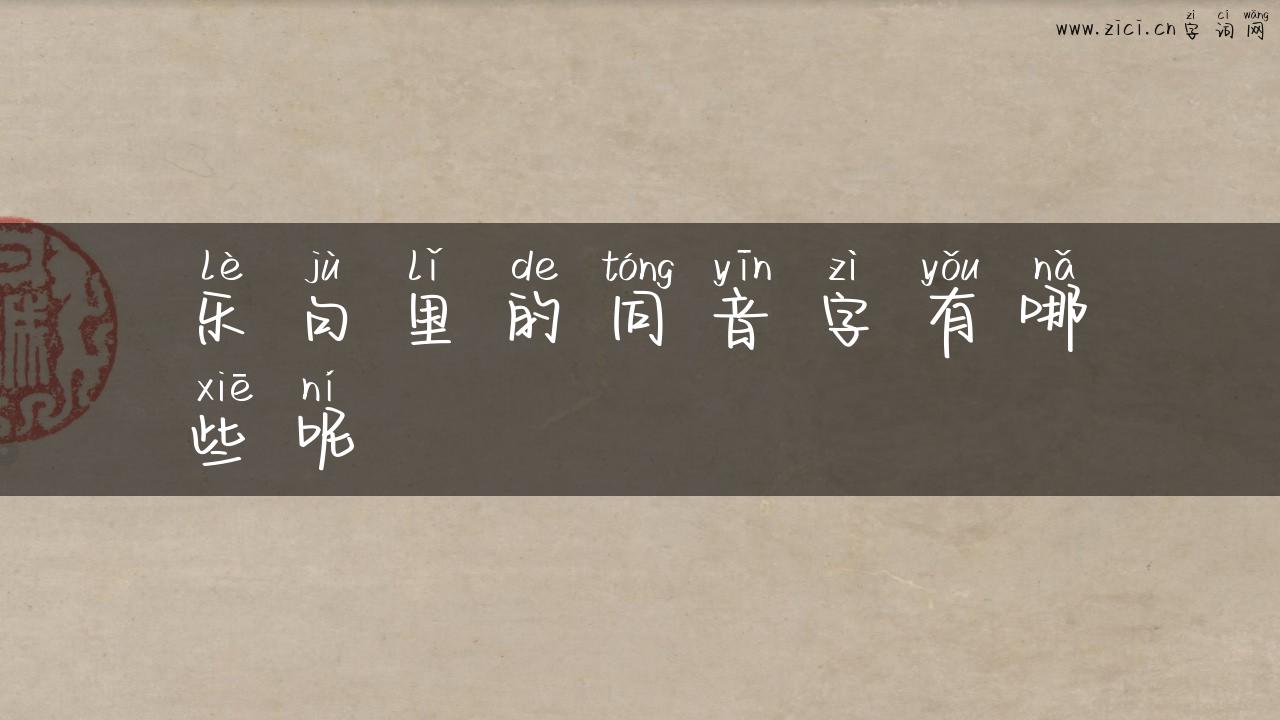 zì cí wǎng
www.zici.cn 字 词 网
lè jù lǐ de tóng yīn zì yǒu nǎ
乐 句 里 的 同 音 字 有 哪
xiē ní
些 呢